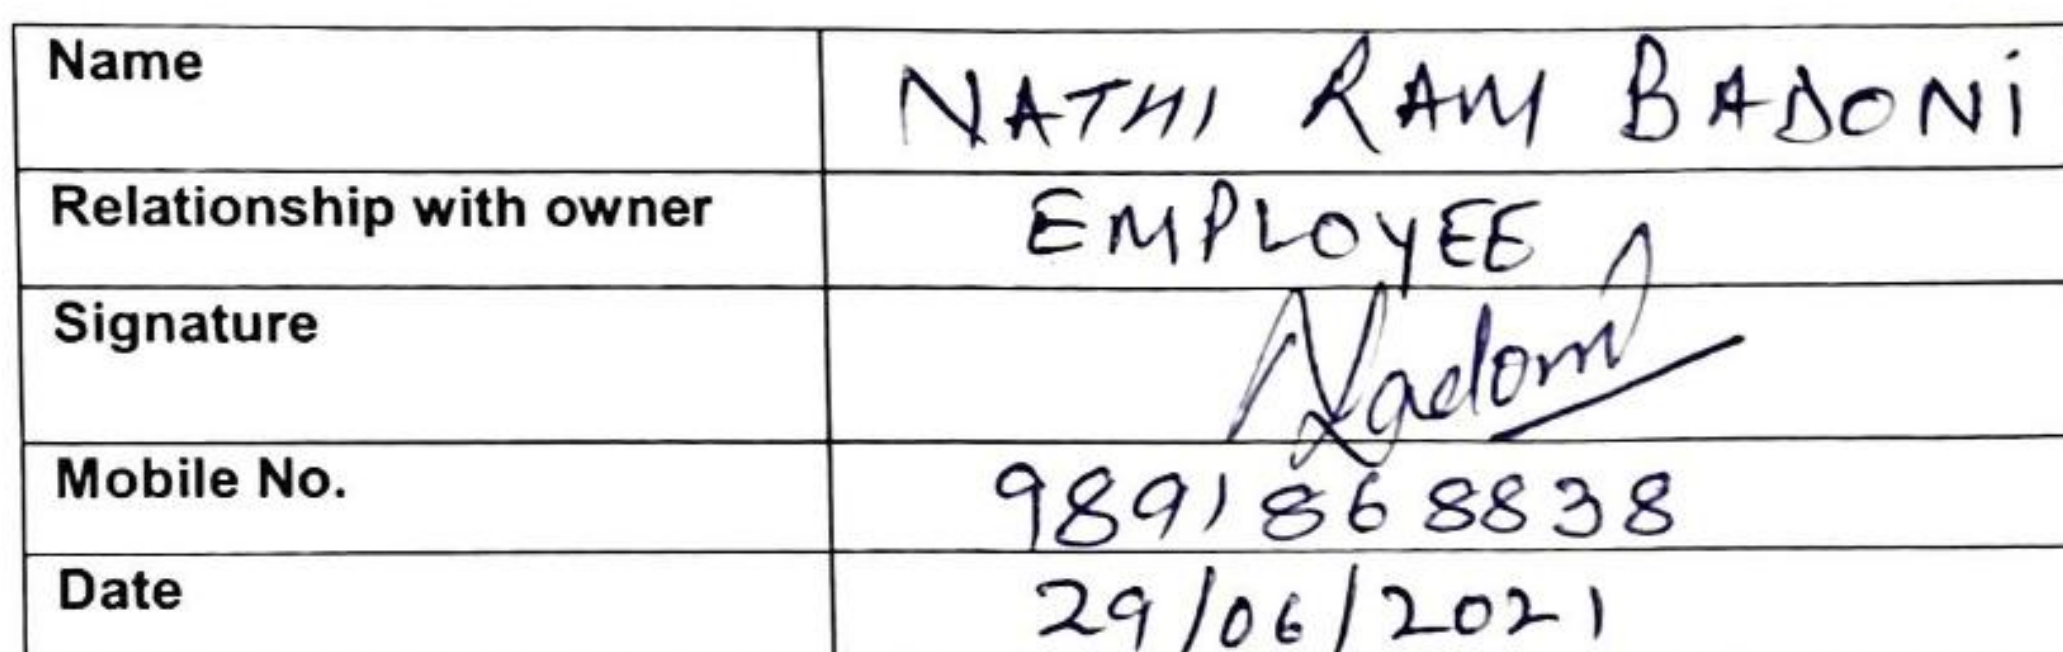 Name NATHI RAM BADONI
Relationship with owner EMPLOYEE
Signature
Mobile No. 9891868838
Date 29/06/2021